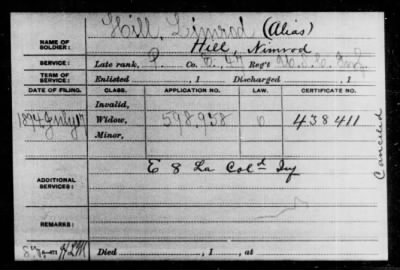 Hill, Limrod (Alias)
NAME OF SOLDIER: Hill, Nimrod
SERVICE: Late rank, P. Co. Reg't U.S.C. Inf.
TERM OF SERVICE: Enlisted , 1 Discharged , 1
DATE OF FILING. CLASS. APPLICATION NO. LAW. CERTIFICATE NO.
Invalid,
1894 July Widow, 598,958 438411
Minor,
Canceled
ADDITIONAL SERVICES: E 8 La Col^d Inf
REMARKS:
Died , 1 , at